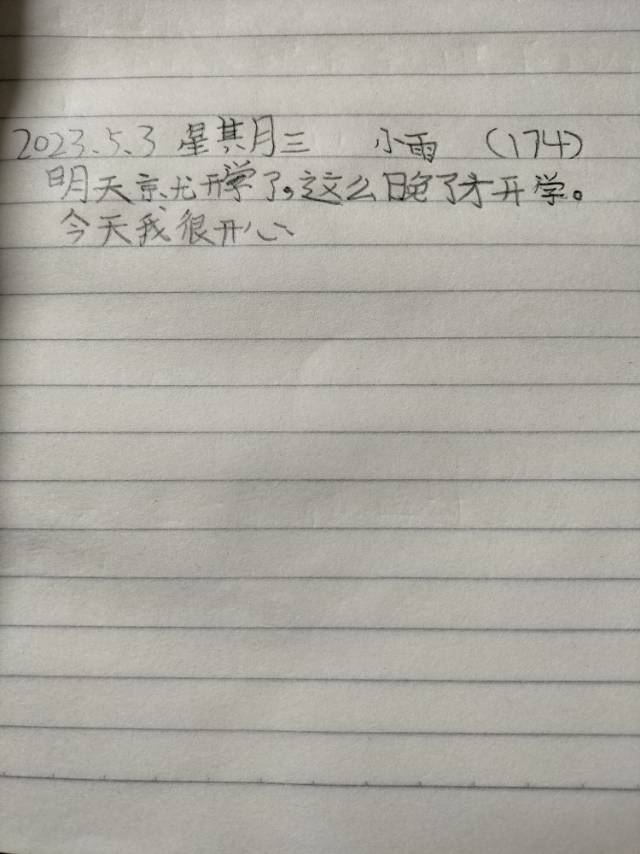 2023.5.3 星期三 小雨 (174)
明天就开学了,这么晚了才开学。
今天我很开心